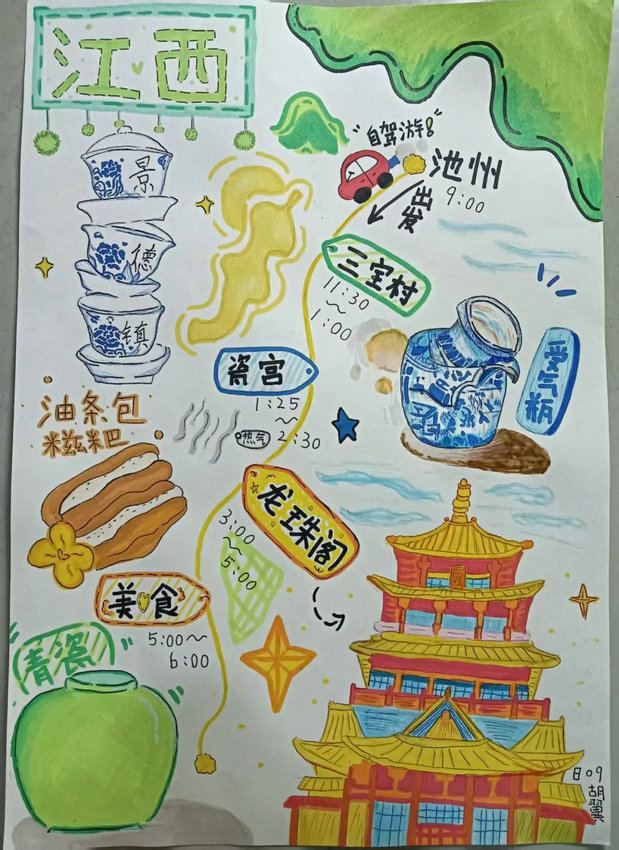 江西
景
德
镇
自驾游!
池州
9:00
出发
三宝村
11:30
~
1:00
瓷宫
1:25
~
2:30
热气
受气瓶
油条包
糍粑
龙珠阁
3:00
~
5:00
美食
5:00~
6:00
青瓷
日09
胡翼